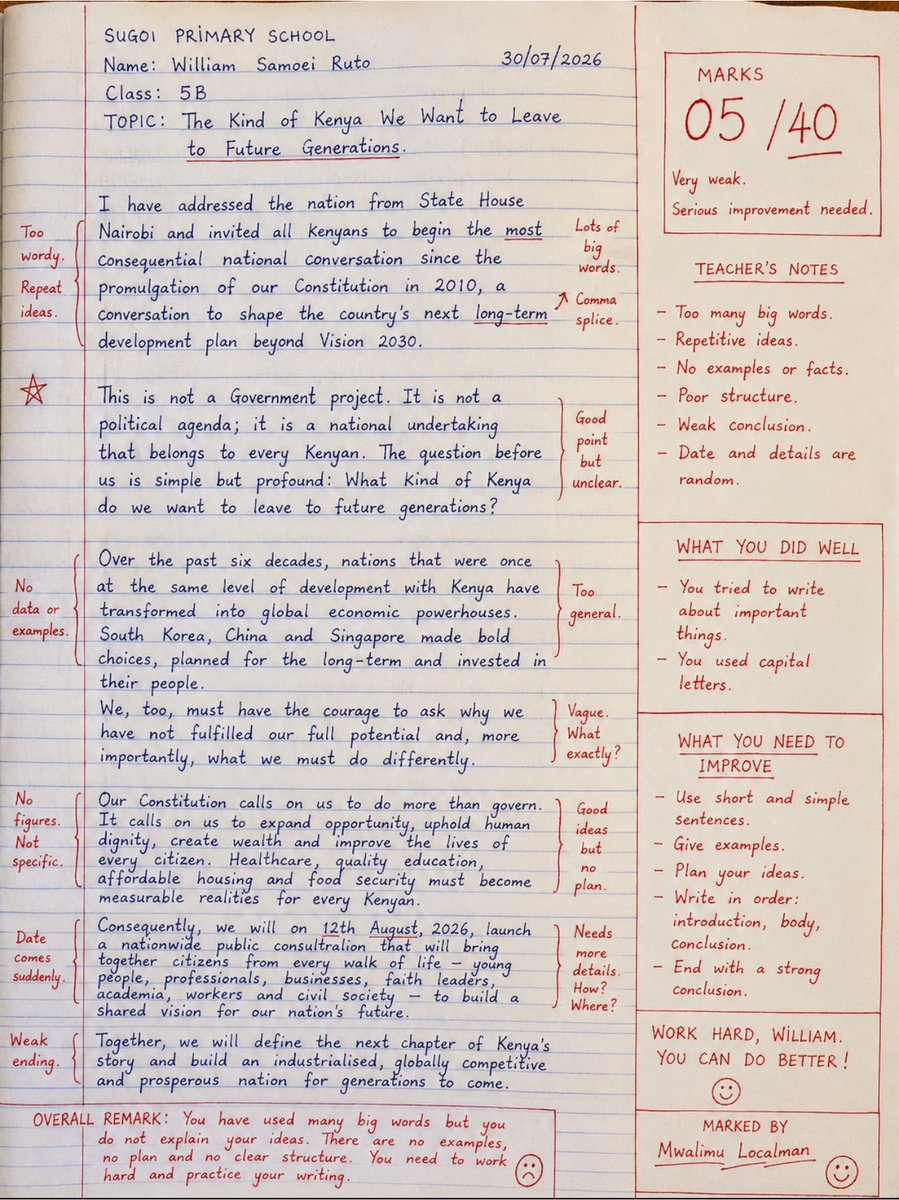 SUGOI PRIMARY SCHOOL
Name: William Samoei Ruto 30/07/2026
Class: 5B
TOPIC: The Kind of Kenya We Want to Leave
to Future Generations.
I have addressed the nation from State House
Nairobi and invited all Kenyans to begin the most
consequential national conversation since the
promulgation of our Constitution in 2010, a
conversation to shape the country's next long-term
development plan beyond Vision 2030.
Too
wordy.
Repeat
ideas.
Lots of
big
words.
Comma
splice.
This is not a Government project. It is not a
political agenda; it is a national undertaking
that belongs to every Kenyan. The question before
us is simple but profound: What kind of Kenya
do we want to leave to future generations?
Good
point
but
unclear.
Over the past six decades, nations that were once
at the same level of development with Kenya have
transformed into global economic powerhouses.
South Korea, China and Singapore made bold
choices, planned for the long-term and invested in
their people.
No
data or
examples.
Too
general.
We, too, must have the courage to ask why we
have not fulfilled our full potential and, more
importantly, what we must do differently.
Vague.
What
exactly?
Our Constitution calls on us to do more than govern.
It calls on us to expand opportunity, uphold human
dignity, create wealth and improve the lives of
every citizen. Healthcare, quality education,
affordable housing and food security must become
measurable realities for every Kenyan.
No
figures.
Not
specific.
Good
ideas
but
no
plan.
Consequently, we will on 12th August, 2026, launch
a nationwide public consultralion that will bring
together citizens from every walk of life – young
people, professionals, businesses, faith leaders,
academia, workers and civil society – to build a
shared vision for our nation's future.
Date
comes
suddenly.
Needs
more
details.
How?
Where?
Together, we will define the next chapter of Kenya's
story and build an industrialised, globally competitive
and prosperous nation for generations to come.
Weak
ending.
OVERALL REMARK: You have used many big words but you
do not explain your ideas. There are no examples,
no plan and no clear structure. You need to work
hard and practice your writing.
MARKS
05/40
Very weak.
Serious improvement needed.
TEACHER'S NOTES
- Too many big words.
- Repetitive ideas.
- No examples or facts.
- Poor structure.
- Weak conclusion.
- Date and details are
random.
WHAT YOU DID WELL
- You tried to write
about important
things.
- You used capital
letters.
WHAT YOU NEED TO
IMPROVE
- Use short and simple
sentences.
- Give examples.
- Plan your ideas.
- Write in order:
introduction, body,
conclusion.
- End with a strong
conclusion.
WORK HARD, WILLIAM.
YOU CAN DO BETTER!
MARKED BY
Mwalimu Localman